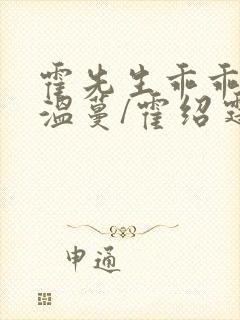 霍先生乖乖
温蔓/霍绍
申通